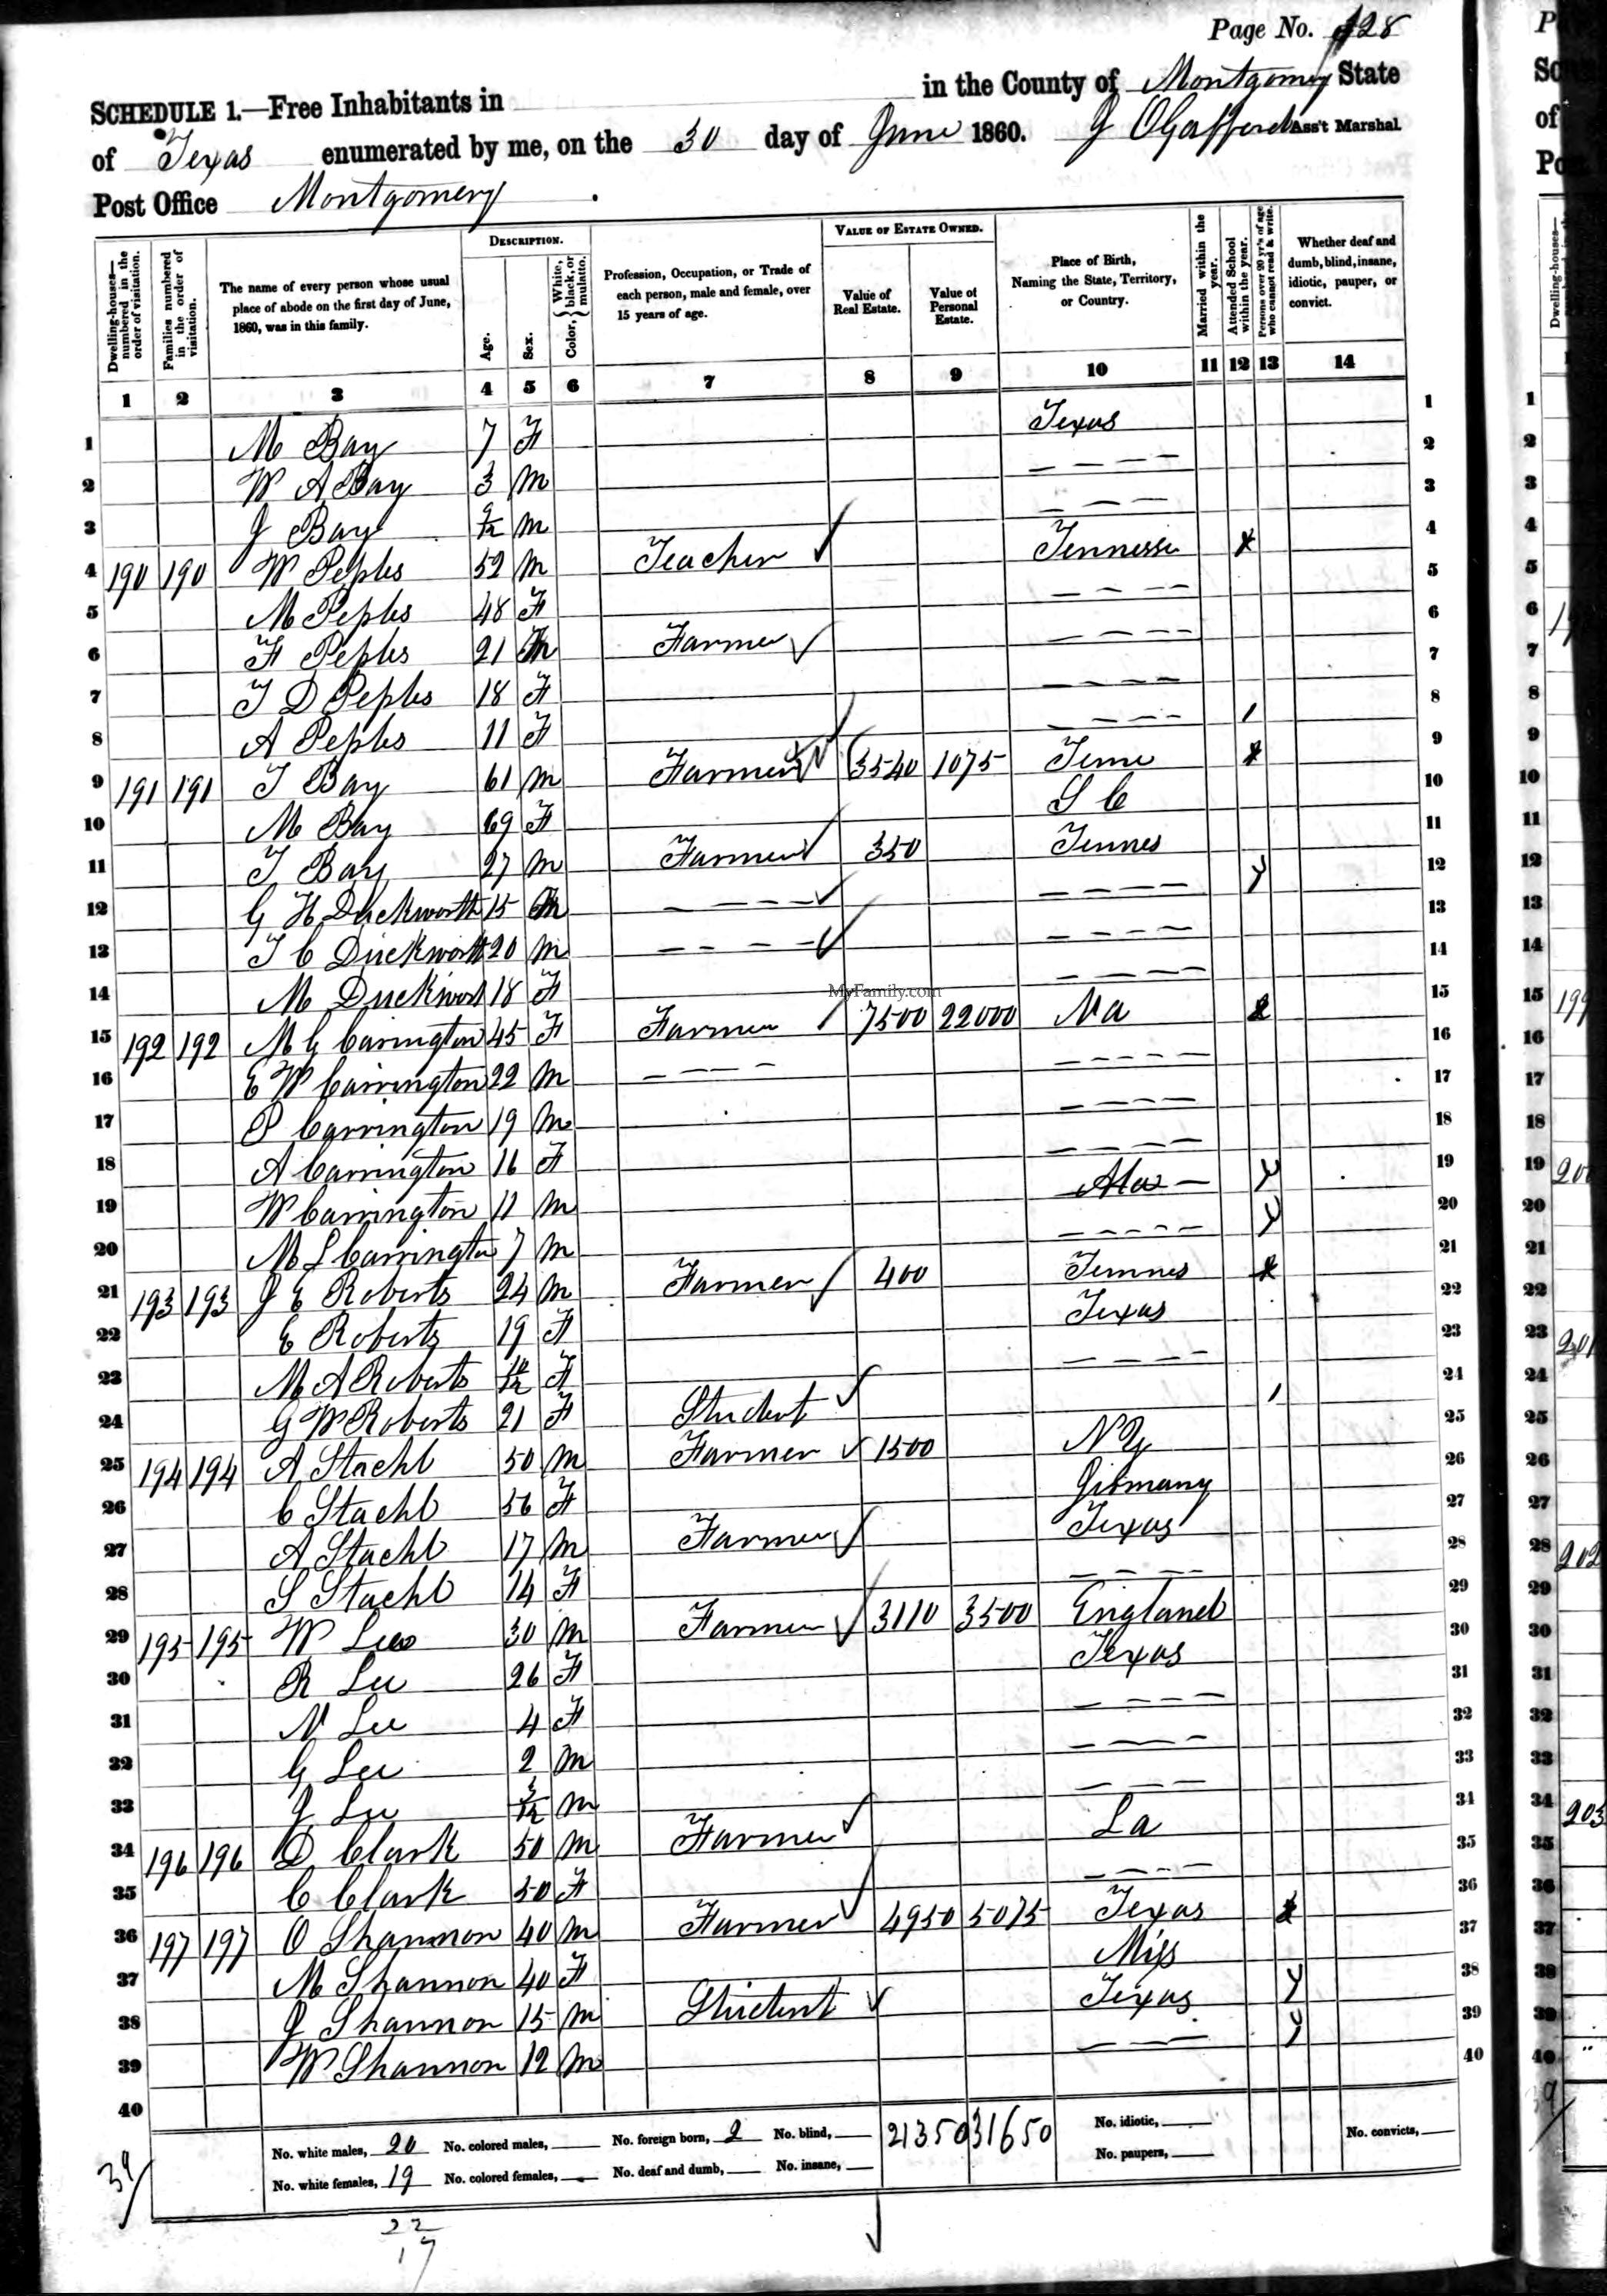 Page No. 128
SCHEDULE 1.—Free Inhabitants in in the County of Montgomery State
of Texas enumerated by me, on the 30 day of June 1860. J O Gafford Ass't Marshal.
Post Office Montgomery
Dwelling-houses—numbered in the order of visitation. Families numbered in the order of visitation. The name of every person whose usual place of abode on the first day of June, 1860, was in this family. DESCRIPTION. Age. Sex. Color, { White, black, or mulatto. Profession, Occupation, or Trade of each person, male and female, over 15 years of age. VALUE OF ESTATE OWNED. Value of Real Estate. Value of Personal Estate. Place of Birth, Naming the State, Territory, or Country. Married within the year. Attended School within the year. Persons over 20 yr's of age who cannot read & write. Whether deaf and dumb, blind, insane, idiotic, pauper, or convict.
1 2 3 4 5 6 7 8 9 10 11 12 13 14
1 M Bay 7 F Texas 1
2 W A Bay 3 m — — — — 2
3 J Bay 9/12 m — — — 3
4 190 190 W Peples 52 m Teacher ✓ Tennesse x 4
5 M Peples 48 F — — — — 5
6 F Peples 21 m Farmer ✓ — — — — 6
7 T D Peples 18 F — — — — 7
8 A Peples 11 F — — — — / 8
9 191 191 T Bay 61 m Farmer ✓ 3540 1075 Tenne x 9
10 M Bay 69 F S C 10
11 T Bay 27 m Farmer ✓ 350 Tennes 11
12 G H Duckworth 15 m — — — — ✓ — — — — Y 12
13 T C Duckworth 20 m — — — — ✓ — — — — 13
14 M Duckwort 18 F — — — — 14
MyFamily.com
15 192 192 M G Carington 45 F Farmer / 7500 22000 Va x 15
16 E W Carrington 22 m — — — — — — — — 16
17 P Carrington 19 m — — — — 17
18 A Carrington 16 F — — — — 18
19 W Carrington 11 m Ala — Y 19
20 M L Carringto 7 m — — — — Y 20
21 193 193 J E Roberts 24 m Farmer / 400 Tennes x 21
22 E Roberts 19 F Texas 22
23 M A Roberts /12 F — — — — 23
24 G W Roberts 21 F Student ✓ / 24
25 194 194 A Staehl 50 m Farmer ✓ 1500 N Y 25
26 C Staehl 56 F Germany 26
27 A Staehl 17 m Farmer ✓ Texas 27
28 S Staehl 14 F — — — — 28
29 195 195 W Lee 30 m Farmer ✓ 3110 3500 England 29
30 R Lee 26 F Texas 30
31 N Lee 4 F — — — — 31
32 G Lee 2 m — — — — 32
33 J Lee 3/12 m — — — 33
34 196 196 D Clark 50 m Farmer ✓ La 34
35 C Clark 50 F — — — — 35
36 197 197 O Shannon 40 m Farmer ✓ 4950 5075 Texas x 36
37 M Shannon 40 F Miss 37
38 J Shannon 15 m Student ✓ Texas Y 38
39 W Shannon 12 m — — — Y 39
40 40
No. white males, 20 No. colored males, No. foreign born, 2 No. blind, 21350 31650 No. idiotic, No. convicts,
No. white females, 19 No. colored females, No. deaf and dumb, No. insane, No. paupers,
39/
22
17